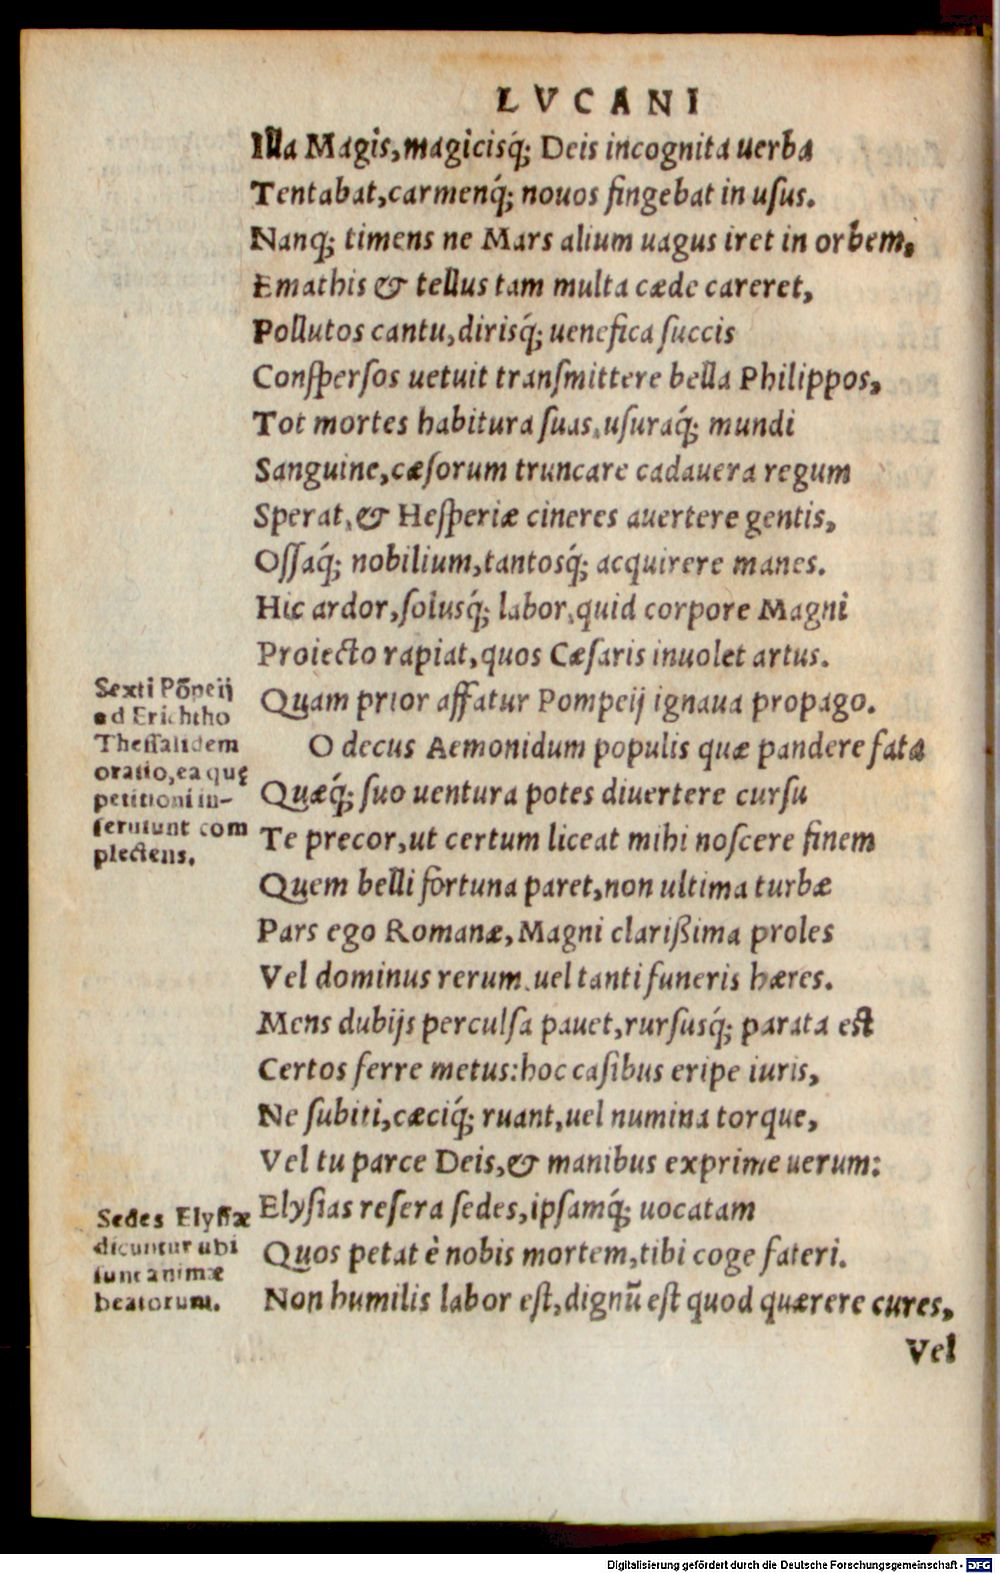 LVCANI
Illa Magis, magicisq́; Deis incognita uerba
Tentabat, carmenq́; nouos fingebat in uſus.
Nanq; timens ne Mars alium uagus iret in orbem,
Emathis & tellus tam multa cæde careret,
Pollutos cantu, dirisq́; uenefica ſuccis
Conſperſos uetuit tranſmittere bella Philippos,
Tot mortes habitura ſuas, uſuraq́; mundi
Sanguine, cæſorum truncare cadauera regum
Sperat, & Heſperiæ cineres auertere gentis,
Oſſaq́; nobilium, tantosq́; acquirere manes.
Hic ardor, ſolusq́; labor, quid corpore Magni
Proiecto rapiat, quos Cæſaris inuolet artus.
Quam prior affatur Pompeij ignaua propago.
O decus Aemonidum populis quæ pandere fata
Quæq́; ſuo uentura potes diuertere curſu
Te precor, ut certum liceat mihi noſcere finem
Quem belli fortuna paret, non ultima turbæ
Pars ego Romanæ, Magni clarißima proles
Vel dominus rerum, uel tanti funeris hæres.
Mens dubijs perculſa pauet, rurſusq́; parata eſt
Certos ferre metus: hoc caſibus eripe iuris,
Ne ſubiti, cæciq́; ruant, uel numina torque,
Vel tu parce Deis, & manibus exprime uerum:
Elyſias reſera ſedes, ipſamq́; uocatam
Quos petat è nobis mortem, tibi coge fateri.
Non humilis labor eſt, dignũ eſt quod quærere cures,
Vel
Sexti Põpeij
ad Erichtho
Theſſalidem
oratio, ea quę
petitioni in-
ſeruiunt com
plectens.
Sedes Elyſſæ
dicuntur ubi
ſunt animæ
beatorum.
Digitalisierung gefördert durch die Deutsche Forschungsgemeinschaft - DFG